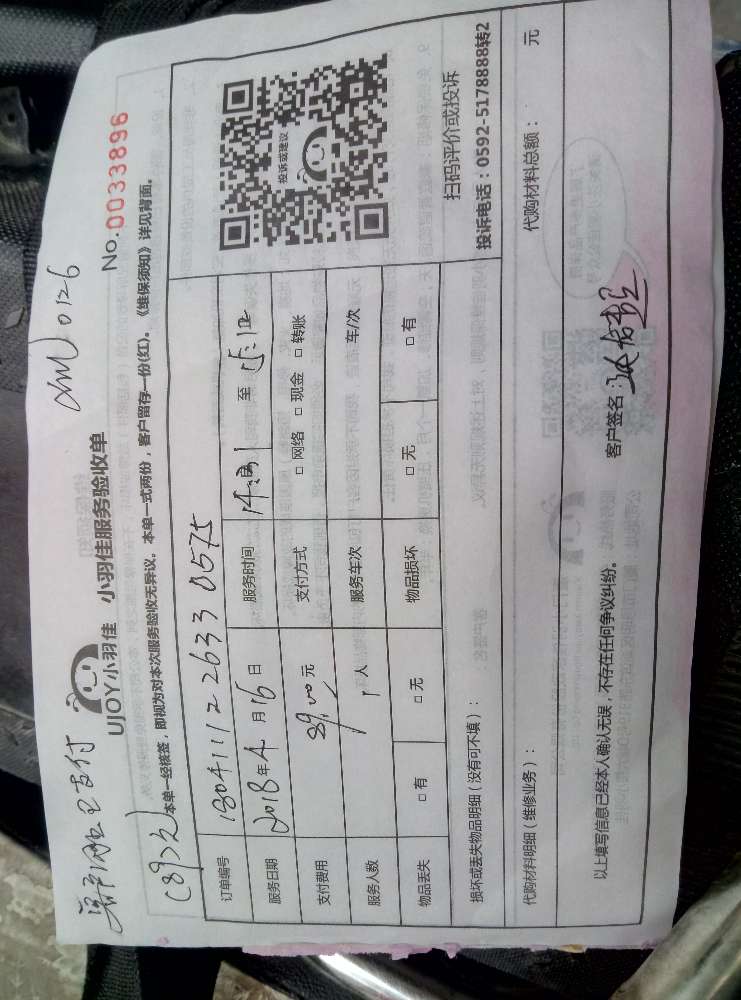 xmu 0126
No.0033896
UJOY小羽佳 小羽佳服务验收单
本单一经核签，即视为对本次服务验收无异议。本单一式两份，客户留存一份(红)。《维保须知》详见背面。
订单编号 1804111226330575
服务日期 2018年4月16日 服务时间 至
支付费用 89.00元 支付方式 □ 网络 □ 现金 □ 转账
服务人数 1人 服务车次 车/次
物品丢失 □ 有 □ 无 物品损坏 □ 无 □ 有
投诉或建议
扫码评价或投诉
投诉电话：0592-5178888转2
损坏或丢失物品明细（没有可不填）：
代购材料明细（维修业务）： 代购材料总额： 元
以上填写信息已经本人确认无误，不存在任何争议纠纷。
客户签名：